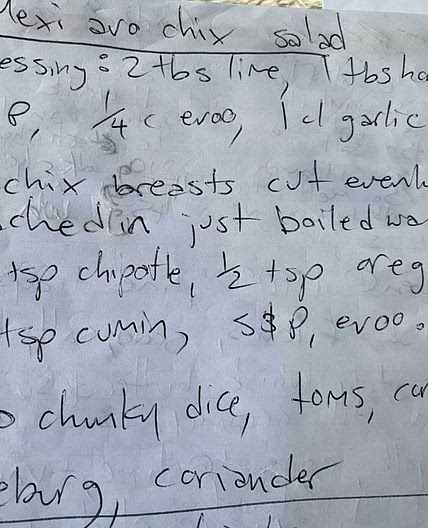 Mexi avo chix salad
essing: 2 tbs lime, 1 tbs ho
P, 1/4 c evoo, 1 cl garlic
chix breasts cut evenl
ched in just boiled wa
tsp chipotle, 1/2 tsp oreg
tsp cumin, S&P, evoo.
o chunky dice, toms, cor
eburg, coriander